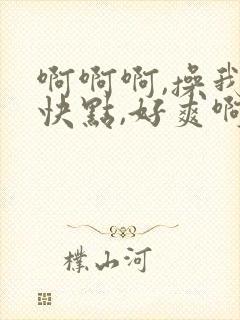 啊啊啊,操我
快點,好爽啊
樸山河